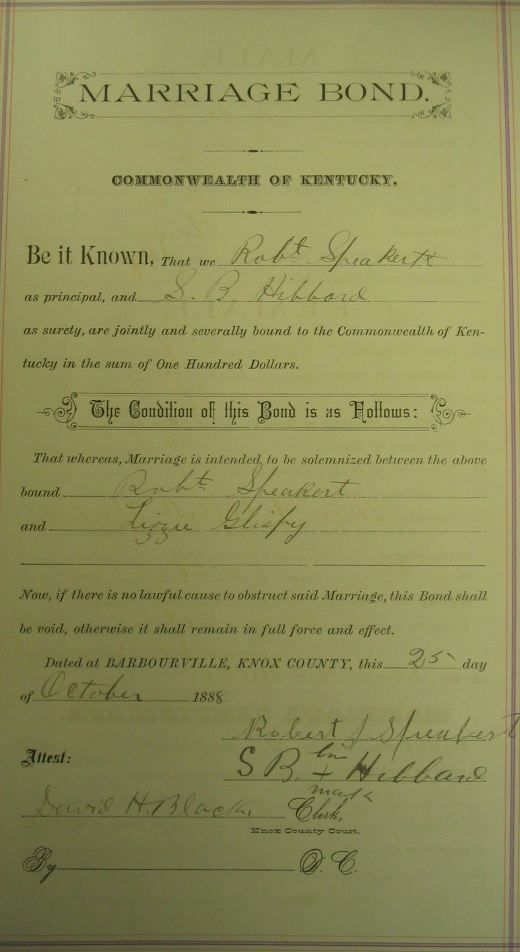 MARRIAGE BOND.
COMMONWEALTH OF KENTUCKY.
Be it Known, That we Robt Speakert
as principal, and S. B. Hibbard
as surety, are jointly and severally bound to the Commonwealth of Ken-
tucky in the sum of One Hundred Dollars.
The Condition of this Bond is as Follows:
That whereas, Marriage is intended to be solemnized between the above
bound Robt Speakert
and Lizzie Glispy
Now, if there is no lawful cause to obstruct said Marriage, this Bond shall
be void, otherwise it shall remain in full force and effect.
Dated at BARBOURVILLE, KNOX COUNTY, this 25 day
of October 1888
Robert J
Attest: S B. his + Hibbard
mark
David H. Black, Clerk,
Knox County Court.
By D. C.